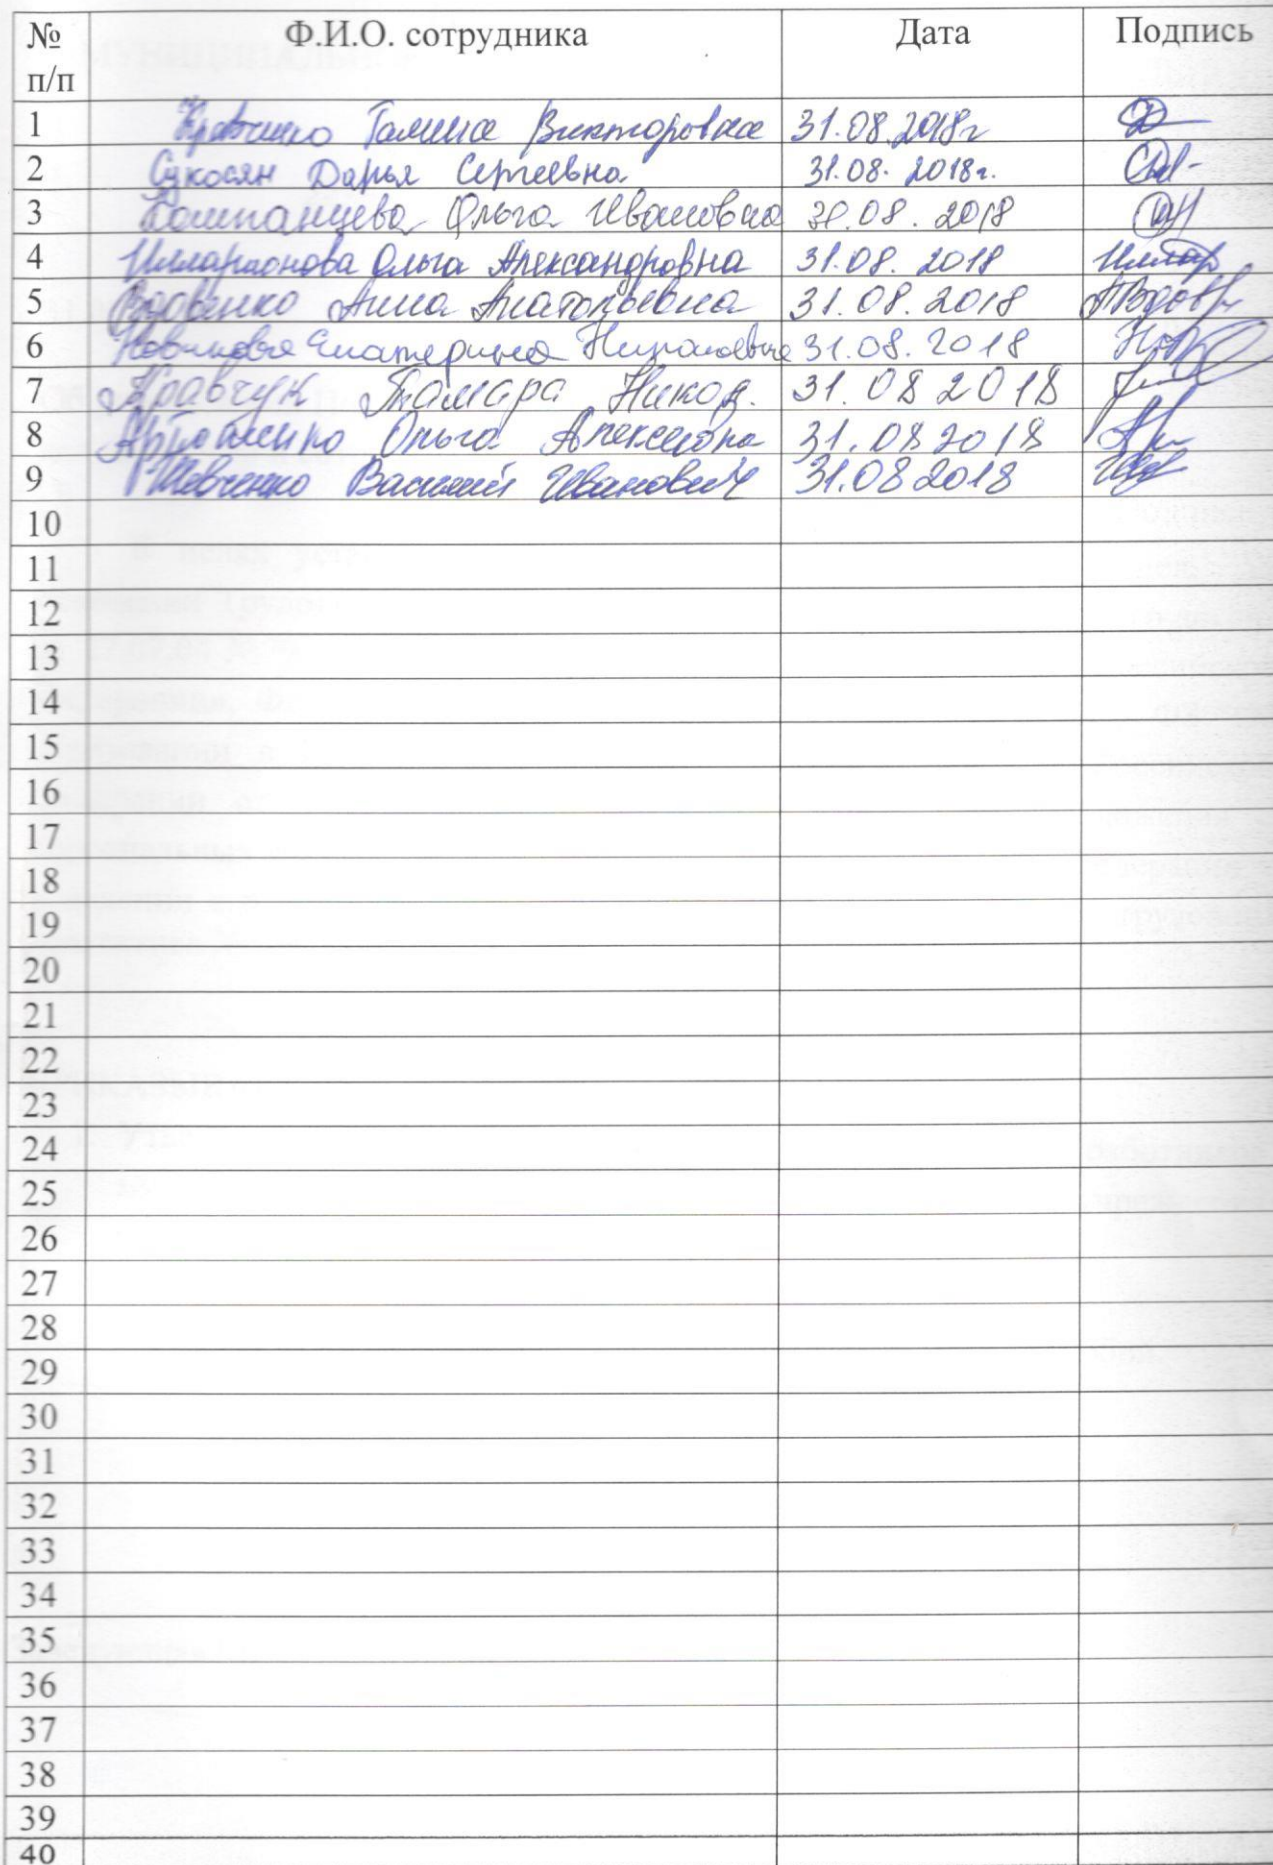 № п/п Ф.И.О. сотрудника Дата Подпись
1 Галина Викторовна 31.08.2018г
2 Сукосян Дарья Сергеевна 31.08.2018г.
3 Компанцева Ольга Ивановна 31.08.2018
4 Илларионова Ольга Александровна 31.08.2018
5 Вдовенко Анна Анатольевна 31.08.2018
6 Новикова Екатерина 31.08.2018
7 Кравчук Тамара Никод. 31.08 2018
8 Ольга Алексеевна 31.08 2018
9 Шевченко Василий Иванович 31.08 2018
10
11
12
13
14
15
16
17
18
19
20
21
22
23
24
25
26
27
28
29
30
31
32
33
34
35
36
37
38
39
40